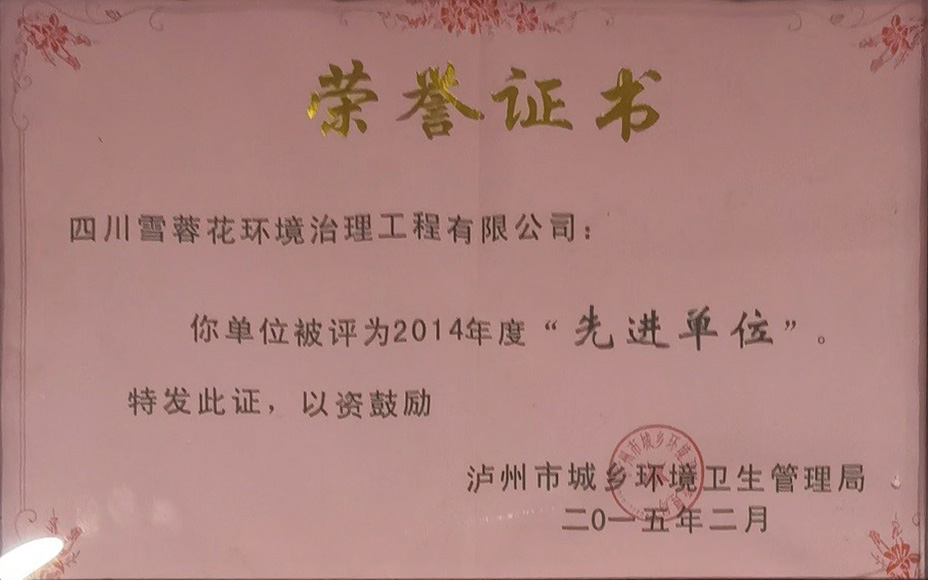 荣誉证书
四川雪蓉花环境治理工程有限公司：
你单位被评为2014年度“先进单位”。
特发此证，以资鼓励
泸州市城乡环境卫生管理局
二0一五年二月